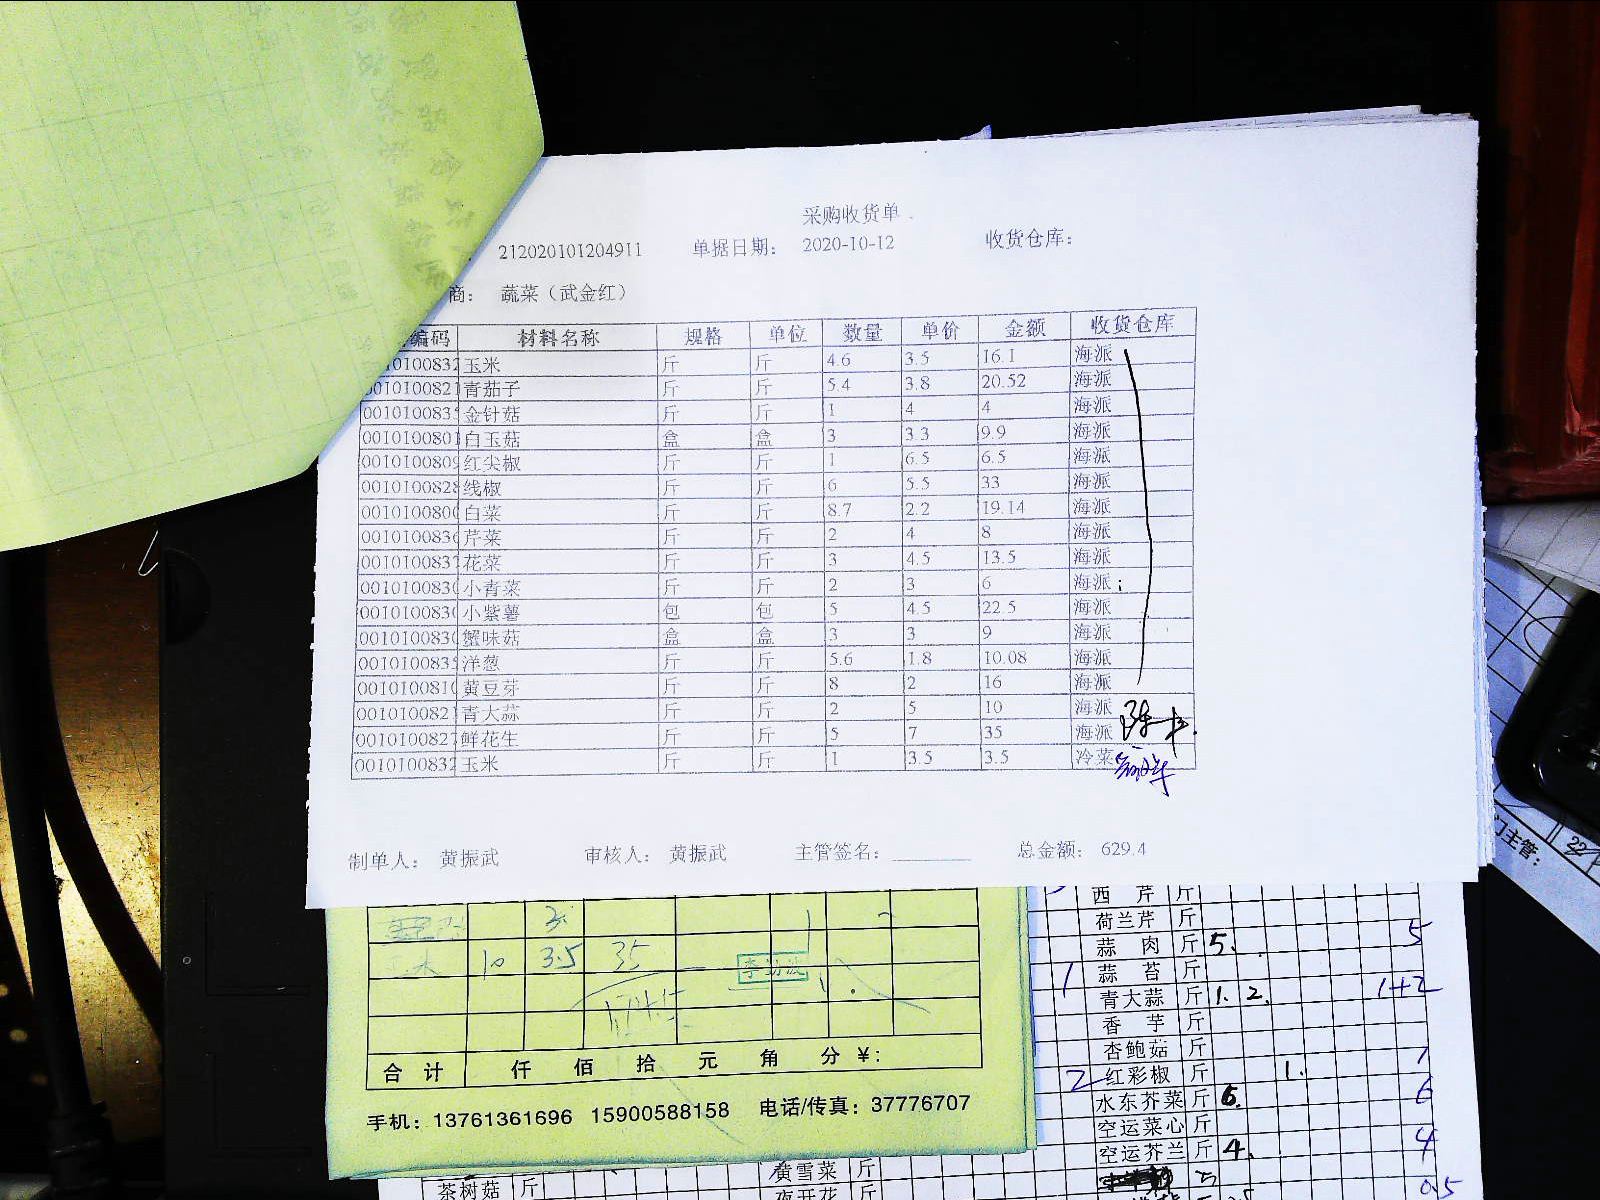 采购收货单
212020101204911 单据日期: 2020-10-12 收货仓库:
商: 蔬菜（武金红）
编码 材料名称 规格 单位 数量 单价 金额 收货仓库
010100832 玉米 斤 斤 4.6 3.5 16.1 海派
0010100821 青茄子 斤 斤 5.4 3.8 20.52 海派
001010083 金针菇 斤 斤 1 4 4 海派
0010100801 白玉菇 盒 盒 3 3.3 9.9 海派
001010080 红尖椒 斤 斤 1 6.5 6.5 海派
0010100828 线椒 斤 斤 6 5.5 33 海派
001010080 白菜 斤 斤 8.7 2.2 19.14 海派
001010083 芹菜 斤 斤 2 4 8 海派
001010083 花菜 斤 斤 3 4.5 13.5 海派
001010083 小青菜 斤 斤 2 3 6 海派
001010083 小紫薯 包 包 5 4.5 22.5 海派
001010083 蟹味菇 盒 盒 3 3 9 海派
001010083 洋葱 斤 斤 5.6 1.8 10.08 海派
001010081 黄豆芽 斤 斤 8 2 16 海派
001010082 青大蒜 斤 斤 2 5 10 海派
001010082 鲜花生 斤 斤 5 7 35 海派
0010100832 玉米 斤 斤 1 3.5 3.5 冷菜
制单人: 黄振武 审核人: 黄振武 主管签名: 总金额: 629.4
门主管:
3.
10 3.5 35
合 计 仟 佰 拾 元 角 分 ¥:
手机: 13761361696 15900588158 电话/传真: 37776707
西 芹 斤
荷兰芹 斤
蒜 肉 斤 5. 5
1 蒜 苔 斤
青大蒜 斤 1. 2. 1+2
香 芋 斤
杏鲍菇 斤
2 红彩椒 斤 1. 1
水东芥菜 斤 6. 6
空运菜心 斤
空运芥兰 斤 4. 4
黄雪菜 斤
茶树菇 斤
夜开花 斤
0.5